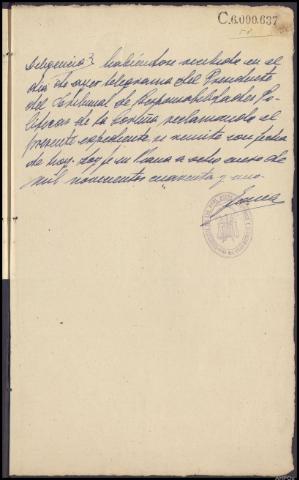 C.6.000.637
Diligencia: habiéndose recibido en el
dia de ayer telegrama del Presidente
del Tribunal de Responsabilidades Po-
líticas de la Coruña reclamando el
presente expediente se remite con fecha
de hoy. Doy fe en a ocho enero de
mil novecientos cuarenta y uno.